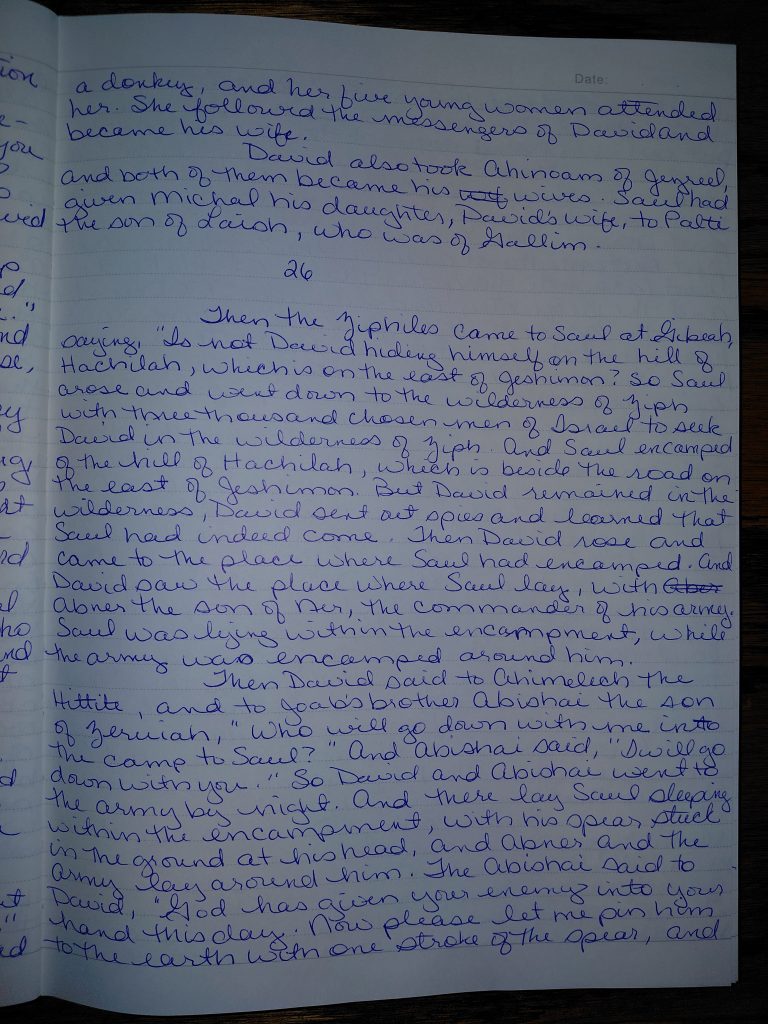 Date:
a donkey, and her five young women attended
her. She followed the messengers of David and
became his wife.
David also took Ahinoam of Jezreel,
and both of them became his wives. Saul had
given Michal his daughter, David's wife, to Palti
the son of Laish, who was of Gallim.
26
Then the Ziphiles came to Saul at Gibeah,
saying, "Is not David hiding himself on the hill of
Hachilah, which is on the east of Jeshimon? So Saul
arose and went down to the wilderness of Ziph
with three thousand chosen men of Israel to seek
David in the wilderness of Ziph. And Saul encamped
of the hill of Hachilah, which is beside the road on
the east of Jeshimon. But David remained in the
wilderness, David sent out spies and learned that
Saul had indeed come. Then David rose and
came to the place where Saul had encamped. And
David saw the place where Saul lay, with
Abner the son of Ner, the commander of his army.
Saul was lying within the encampment, while
the army was encamped around him.
Then David said to Ahimelech the
Hittite, and to Joab's brother Abishai the son
of Zeruiah, "Who will go down with me into
the camp to Saul?" And Abishai said, "I will go
down with you." So David and Abishai went to
the army by night. And there lay Saul sleeping
within the encampment, with his spear stuck
in the ground at his head, and Abner and the
army lay around him. The Abishai said to
David, "God has given your enemy into your
hand this day. Now please let me pin him
to the earth with one stroke of the spear, and